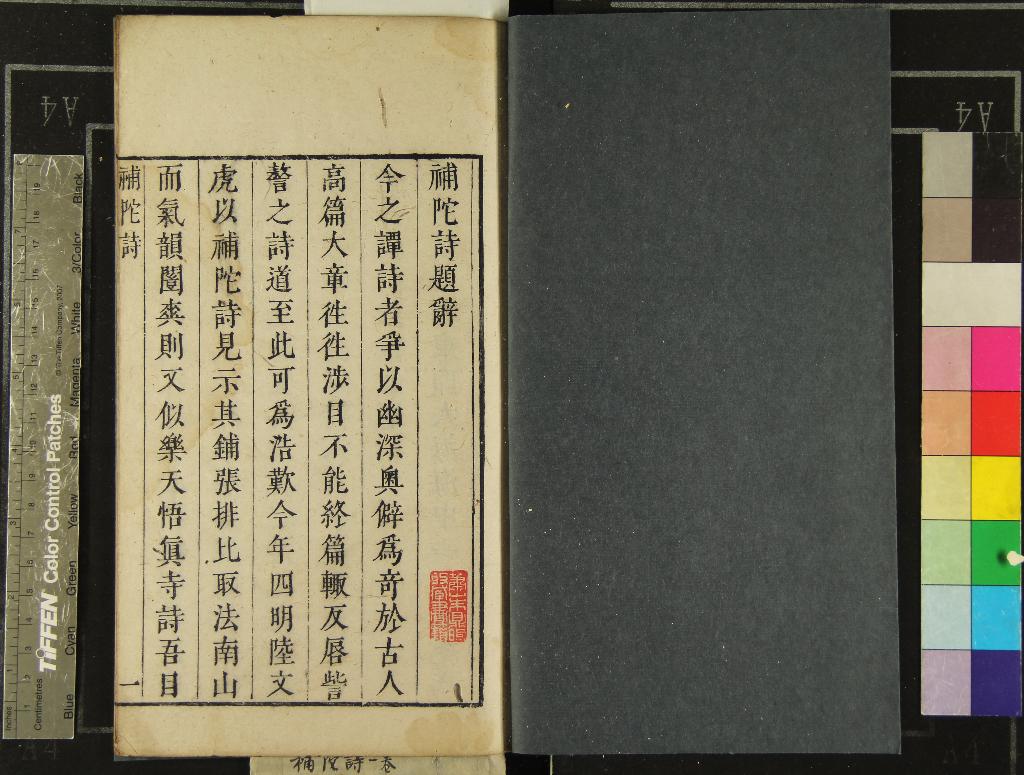 補陀詩題辭
今之譚詩者爭以幽深奧僻爲竒於古人
高篇大章徃徃涉目不能終篇輙反唇訾
謷之詩道至此可爲浩歎今年四明陸文
虎以補陀詩見示其鋪張排比取法南山
而氣韻闓爽則又似樂天悟眞寺詩吾目
補陀詩
一
補陀詩一卷
A4
A4
TIFFEN Color Control Patches
© The Tiffen Company, 2007
Blue Cyan Green Yellow Red Magenta White 3/Color Black
Centimetres
Inches